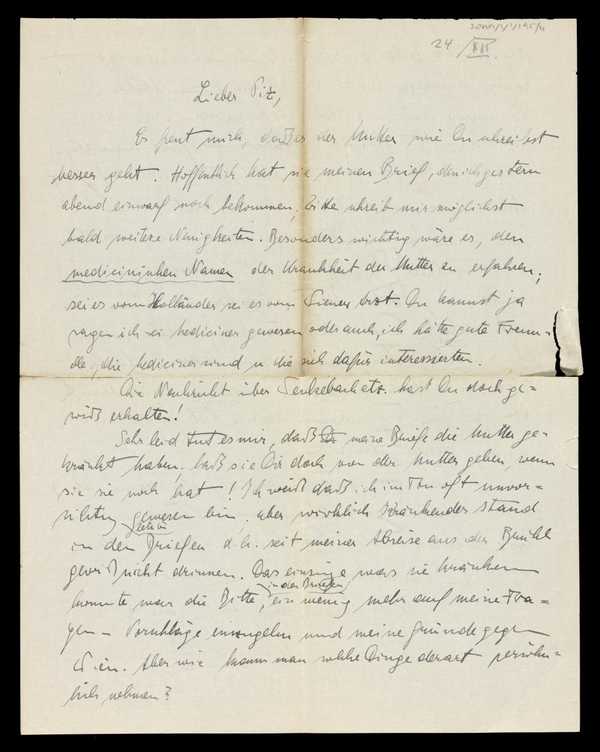 24/XII.
Lieber Pit,
Es freut mich, daß es der Mutter wie Du schreibst
besser geht. Hoffentlich hat sie meinen Brief, den ich gestern
abend einwarf noch bekommen. Bitte schreib mir möglichst
bald weitere Neuigkeiten. Besonders wichtig wäre es, den
medicinischen Namen der Krankheit der Mutter zu erfahren,
sei es vom Holländer sei es vom Wiener Arzt. Du kannst ja
sagen ich sei Mediciner gewesen oder auch, ich hätte gute Freun-
de, die Mediciner sind u die sich dafür interessierten.
Die Nachricht über hast Du doch ge-
wiß erhalten!
Sehr leid tut es mir, daß meine Briefe die Mutter ge-
kränkt haben. Laß sie Dir doch von der Mutter geben, wenn
sie sie noch hat! Ich weiß daß ich im Ton oft unvor-
sichtig gewesen bin, aber wirklich kränkendes stand
in den Briefen d.h. seit meiner Abreise aus der Brühl
gewiß nicht drinnen. Das einzige was sie kränken
konnte war die Bitte, in den Briefen ein wenig mehr auf meine Fra-
gen – Vorschläge einzugehn und meine Gründe gegen
Wien. Aber wie kann man solche Dinge derart persön-
lich nehmen?